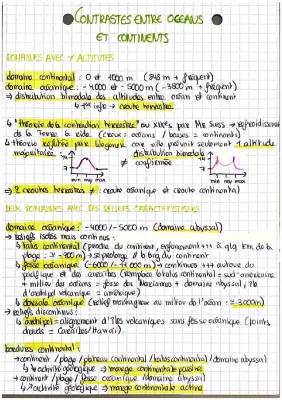 CONTRASTES ENTRE OCEANS
ET CONTINENTS
DOMAINES AVEC ≠ ALTITUDES
domaine continental : 0 et 1000 m (848 m + fréquent)
domaine océanique : -4000 et -5000 m (-3800 m + fréquent)
⇒ distribution bimodale des altitudes entre océan et continent
↳ 1ère info → croûte terrestre
↳ "théorie de la contraction terrestre" au XIXes par Mr Suess → refroidissement
de la Terre la ride. (creux = océans / bosses = continents)
↳ théorie réfutée par Wegener car elle prévoit seulement 1 altitude
majoritaire. distribution bimodale
≠ confirmée
min moy max min moy max
⇒ 2 croûtes terrestres ≠ : croûte océanique et croûte continentale
DEUX DOMAINES OCÉANIQUES AVEC DES RELIEFS CARACTÉRISTIQUES
domaine océanique : -4000 / -5000 m (domaine abyssal)
→ reliefs isolés mais continus :
↳ talus continental (proche du continent, enfoncement +++ à qlq km de la
plage : ≈ -300 m) → se prolonge le long du continent
↳ fosse océanique (-6000 / -11 000 m) → continues +++ autour du
pacifique et des caraïbes (remplace le talus continental = sud-américaine
+ milieu des océans = fosse des Mariannes + domaine abyssal, 
d'activité volcanique = amérique)
↳ dorsale océanique (relief montagneux au milieu de l'océan : ≈ -3000 m)
→ reliefs discontinus :
↳ archipel = alignement d'îles volcaniques sans fosse océanique (points
chauds = Caraïbes / Hawaï).
bordures continentales :
→ continent / plage / plateau continental / talus continental / domaine abyssal
↳ activité géologique → marge continentale passive
→ continent / plage / fosse océanique / domaine abyssal
↳ activité géologique → marge continentale active